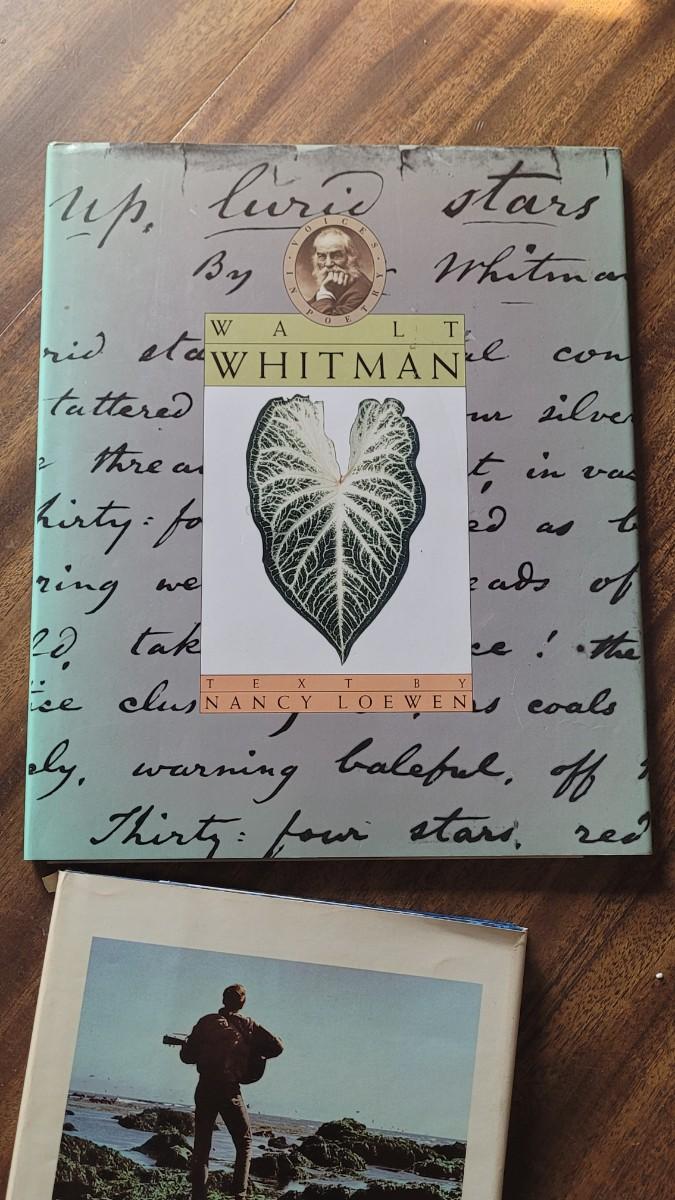 up, lurid stars
By Whitman
VOICES IN POETRY
WALT
rid sta al con
WHITMAN
tattered ur silver
threa t, in va
hirty: fo ed as b
ring we eads of
ld, tak ce! the
TEXT BY
NANCY LOEWEN
ise clus s coals
ely, warning baleful, off
Thirty: four stars, red